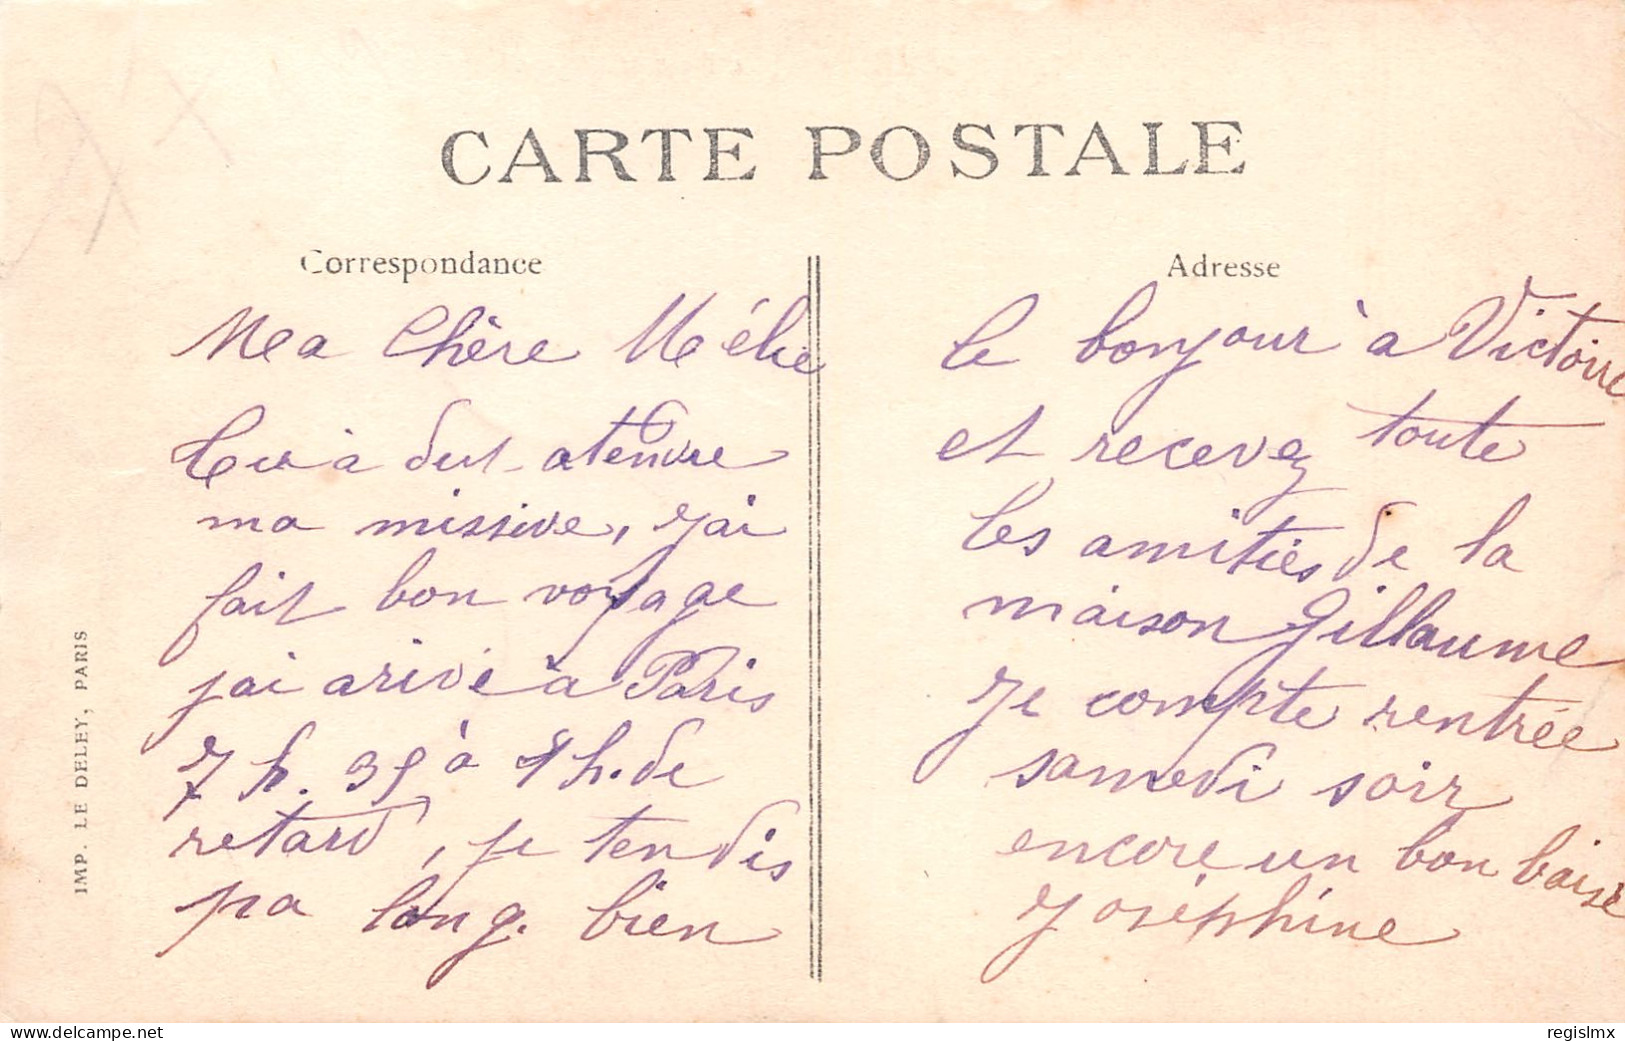 CARTE POSTALE
Correspondance
Ma Chère Mélie
Tu à dut atendre
ma missive, j'ai
fait bon voyage
j'ai arivé à Paris
7 h. 35 à 1 h. de
retard, je ten dis
pa long. bien
Adresse
le bonjour à Victoire
et recevez toute
les amitiés de la
maison Gillaume
Je compte rentrée
samedi soir
encore un bon baisé
Joséphine
IMP. LE DELEY, PARIS
www.delcampe.net
regislmx